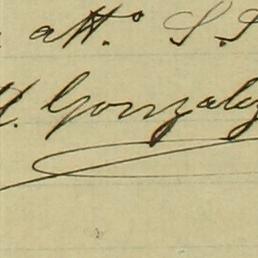 att.º S.S
H. Gonzalez